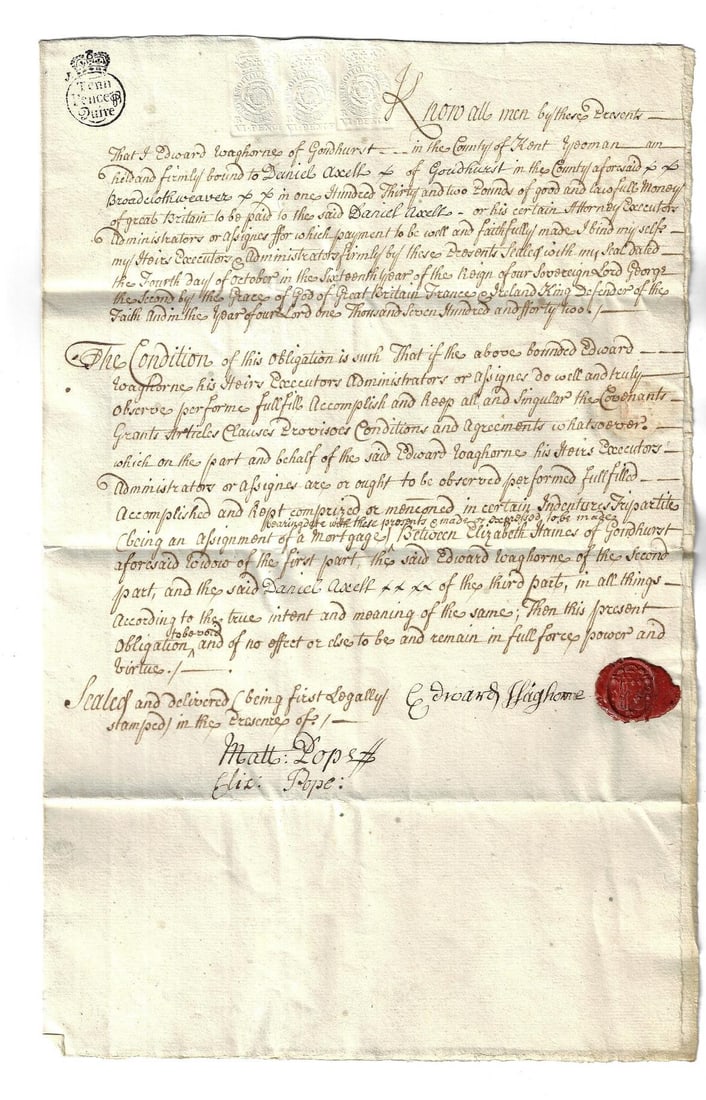 Tenn
Pence ⅌
Quire
VI·PENCE VI·PENCE VI·PENCE
Know all men by these Presents
That I Edward Waghorne of Goudhurst - - - in the County of Kent Yeoman am
held and firmly bound to Daniel Axell x of Goudhurst in the County aforesaid x x
Broadclothweaver x x in one Hundred Thirty and two Pounds of good and lawfull Money
of great Britain to be paid to the said Daniel Axell - or his certain Attorney Executors
Administrators or Assignes ffor which payment to be well and faithfully made I bind my selfe
my Heirs Executors & Administrators firmly by these Presents Sealed with my Seal Dated
the Fourth day of October in the Sixteenth year of the Reign of our Sovereign Lord George
the Second by the Grace of God of Great Britain France & Ireland King Defender of the
Faith And in the Year of our Lord one Thousand Seven Hundred and fforty two /
The Condition of this Obligation is such That if the above bounded Edward
Waghorne his Heirs Executors Administrators or Assignes do well and truly
Observe performe fullfill Accomplish and keep all and singular the Covenants
Grants Articles Clauses Provisoes Conditions and Agreements whatsoever
which on the part and behalf of the said Edward Waghorne his Heirs Executors
Administrators or Assignes are or ought to be observed performed fullfilled
Accomplished and kept comprized or menconed in certain Indentures Tripartite
bearing date with these presents & made or expressed to be made
(being an Assignment of a Mortgage) Between Elizabeth Haines of Goudhurst
aforesaid Widow of the first part, the said Edward Waghorne of the Second
part, and the said Daniel Axell x x x x of the third part, in all things
According to the true intent and meaning of the same; Then this present
Obligation to be void and of no effect or else to be and remain in full force power and
Virtue. /
Sealed and delivered (being first Legally
stamped) in the Presence of /
Edward Waghorne
Matt: Pope
Eliz: Pope: